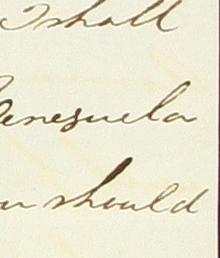 I shall
Venezuela
you should